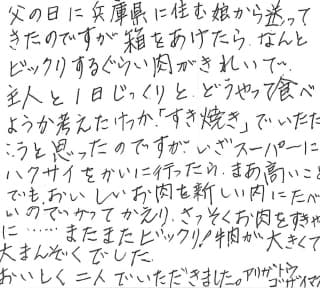 父の日に兵庫県に住む娘から送って
きたのですが箱をあけたら、なんと
ビックリするぐらい肉がきれいで、
主人と1日じっくりと、どうやって食べ
ようか考えたけっか、「すき焼き」でいただ
こうと思ったのですが、いざスーパーに
ハクサイをかいに行ったら、まあ高いこと
でも、おいしいお肉を新しい内にたべ
いのでかってかえり、さっそくお肉をすきや
に……またまたビックリ!牛肉が大きくて
大まんぞくでした。
おいしく二人でいただきました。アリガトウ
ゴザイマ